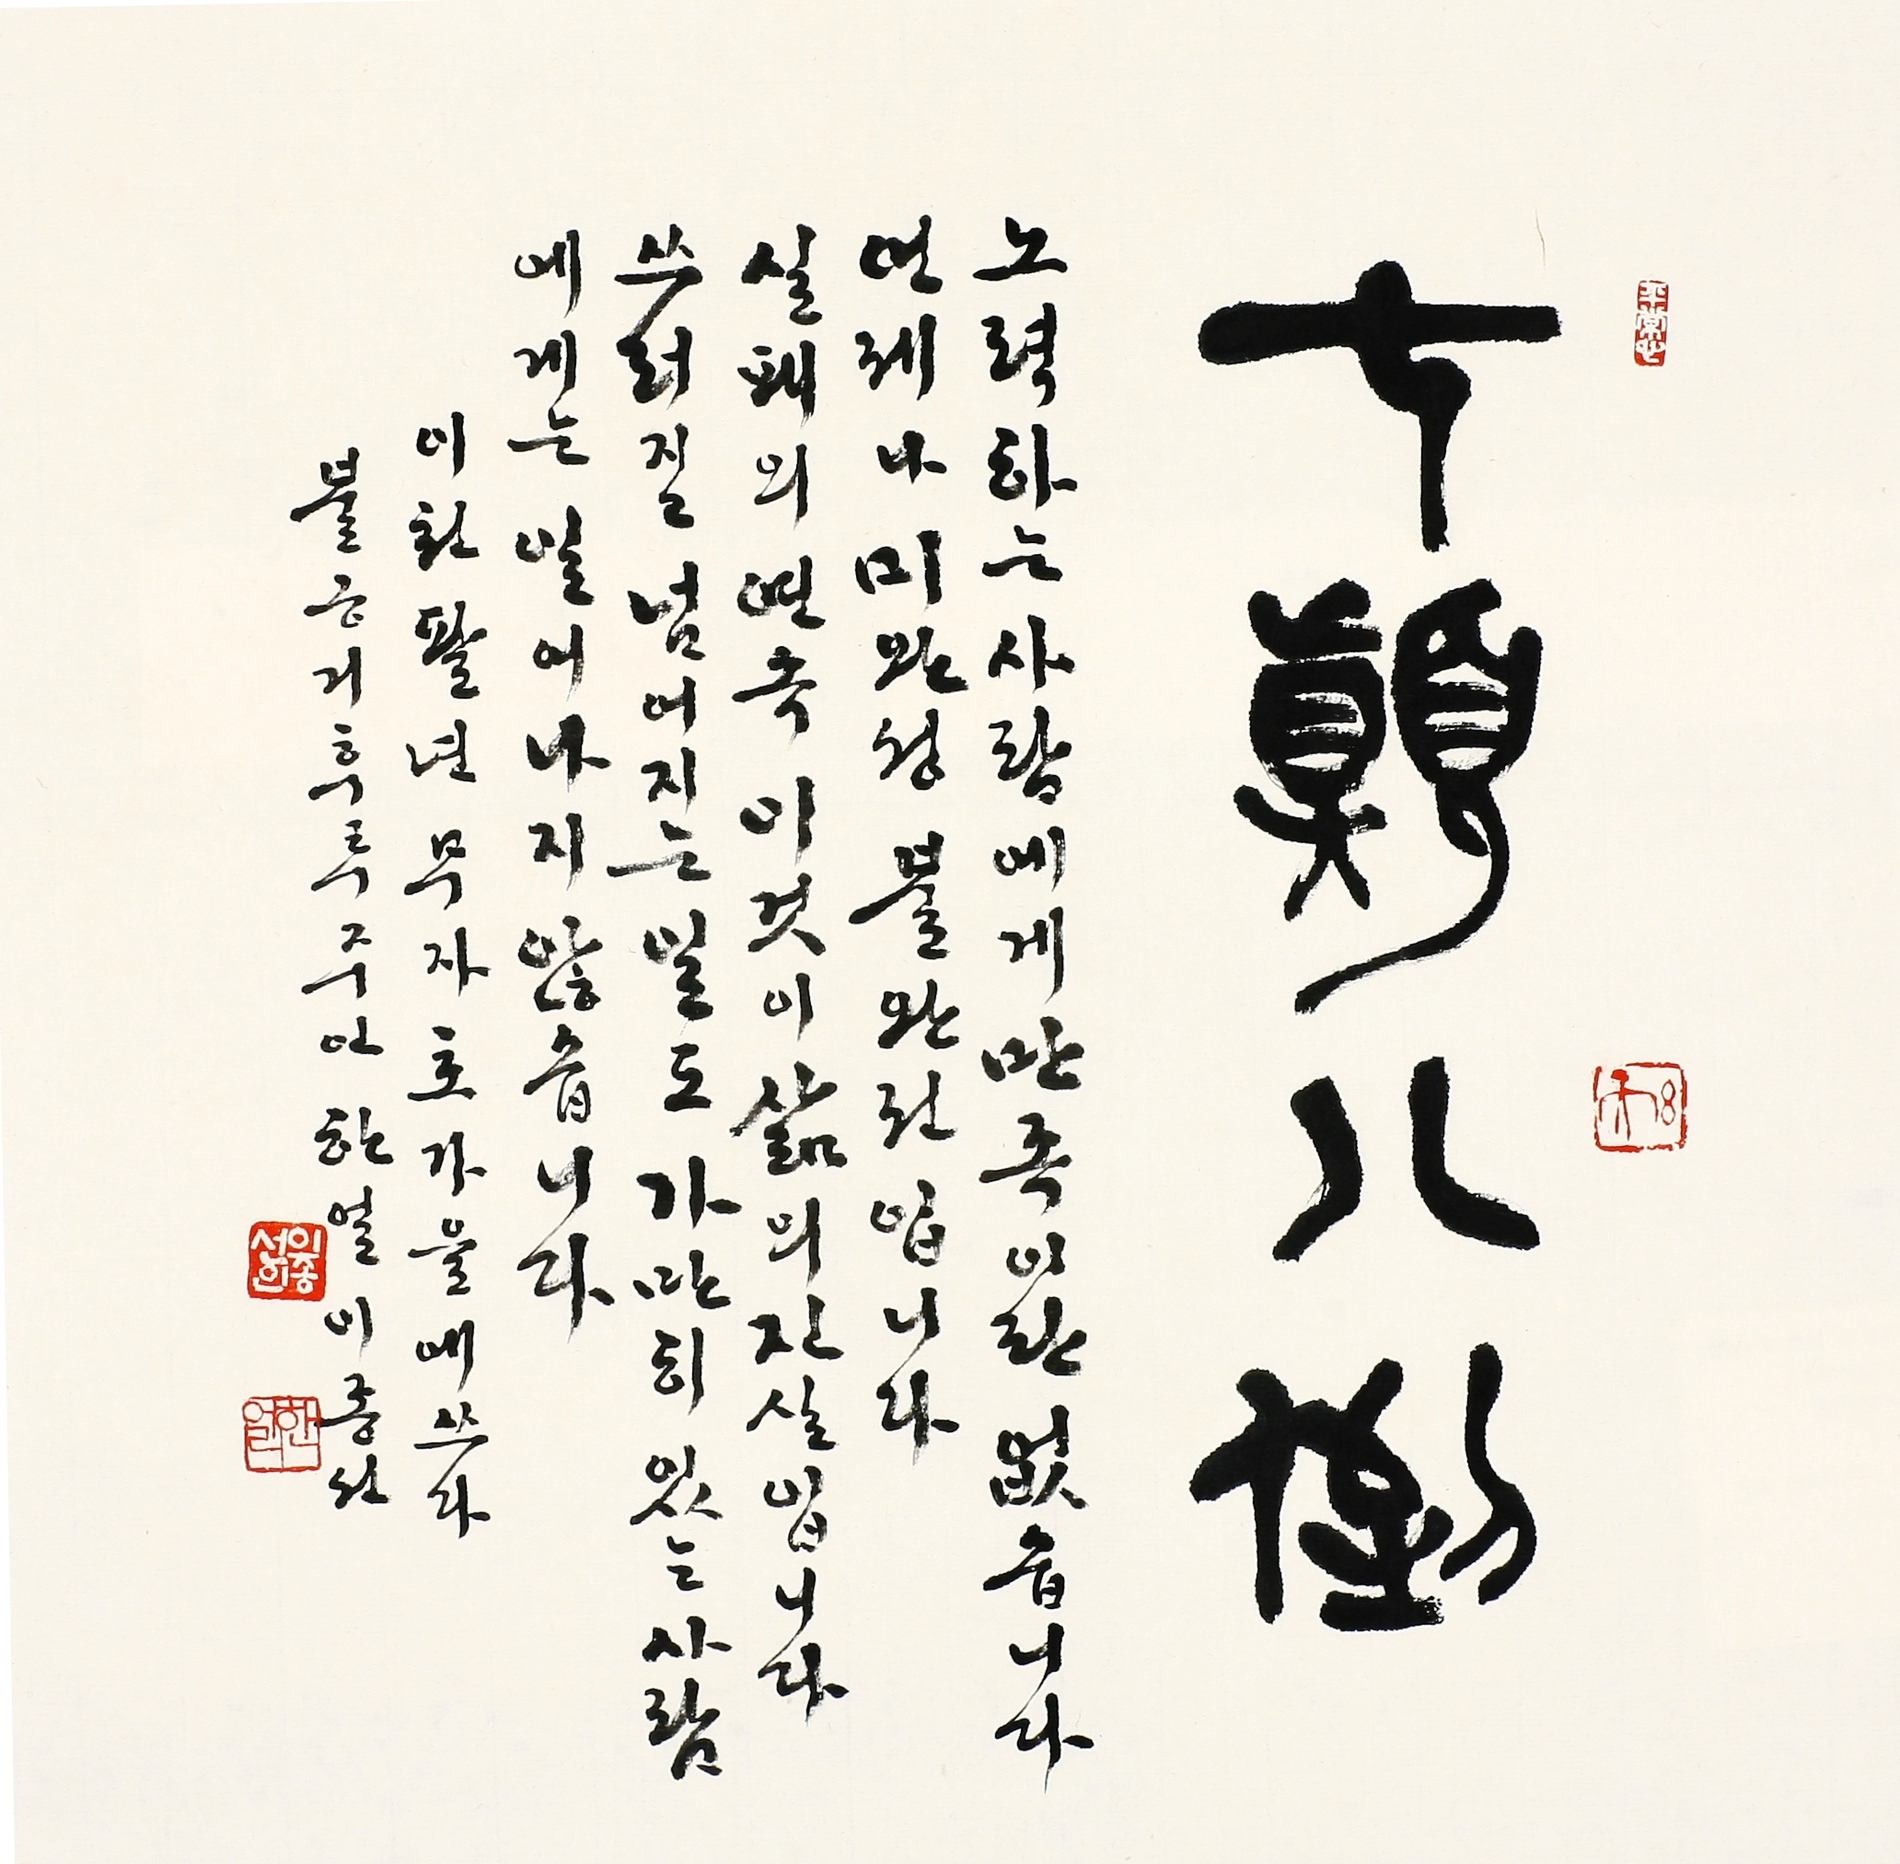 七顚八倒
노력하는 사람에게 만족이란 없습니다
언제나 미완성 불완전입니다
실패의 연속 이것이 삶의 진실입니다
쓰러질 넘어지는 일도 가만히 있는 사람
에게는 일어나지 않습니다
이천팔년 무자 초가을에 쓰다
불긍거후루주인 한얼 이종선
한얼